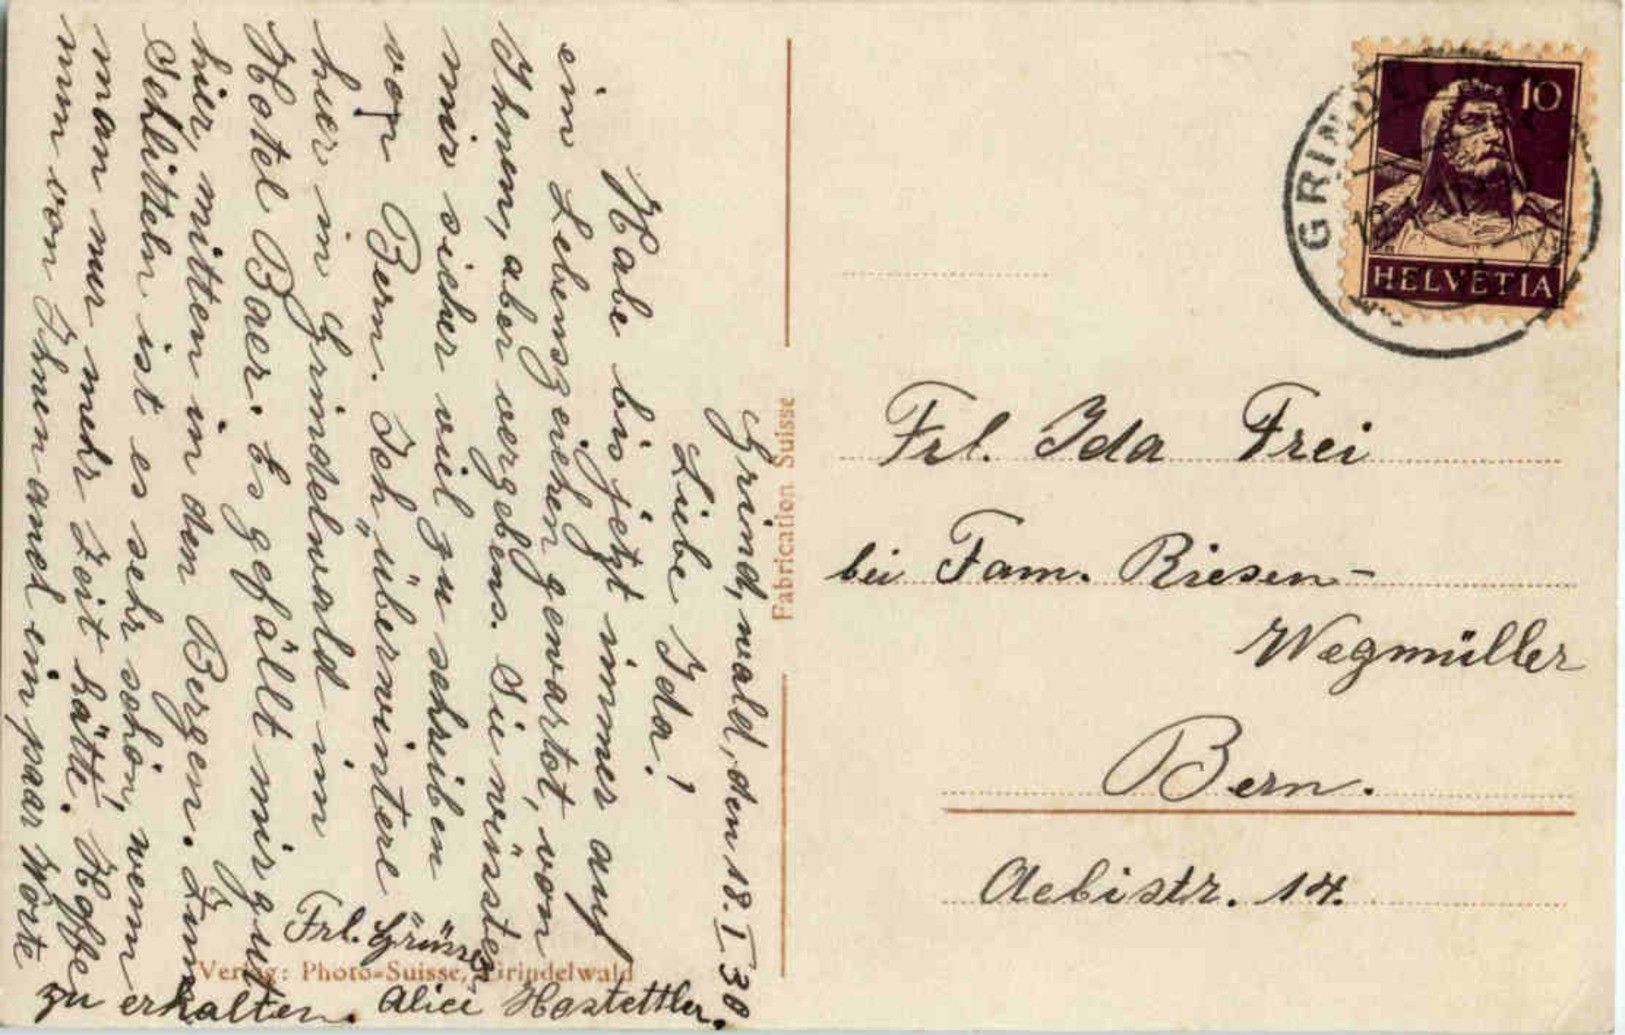 Grind,wald, den 18. I 30
Liebe Ida!
Habe bis jetzt immer auf
ein Lebenszeichen gewartet, von
Ihnen, aber vergebens. Sie wüssten
mir sicher viel zu schreiben
von Bern. Ich „überwintere
hier in Grindelwald im
Hotel Baer. Es gefällt mir gut
hier, mitten in den Bergen. Zum
Schlitteln ist es sehr schön, wenn
man nur mehr Zeit hätte. Hoffe
nun von Ihnen auch ein paar Worte
zu erhalten.
Frl. Grüsse
Alice Hostettler.
Verlag: Photo-Suisse, Grindelwald
Fabrication Suisse
GRINDEL
10
HELVETIA
Frl. Ida Frei
bei Fam. Riesen-
Wegmüller
Bern.
Aebistr. 14.